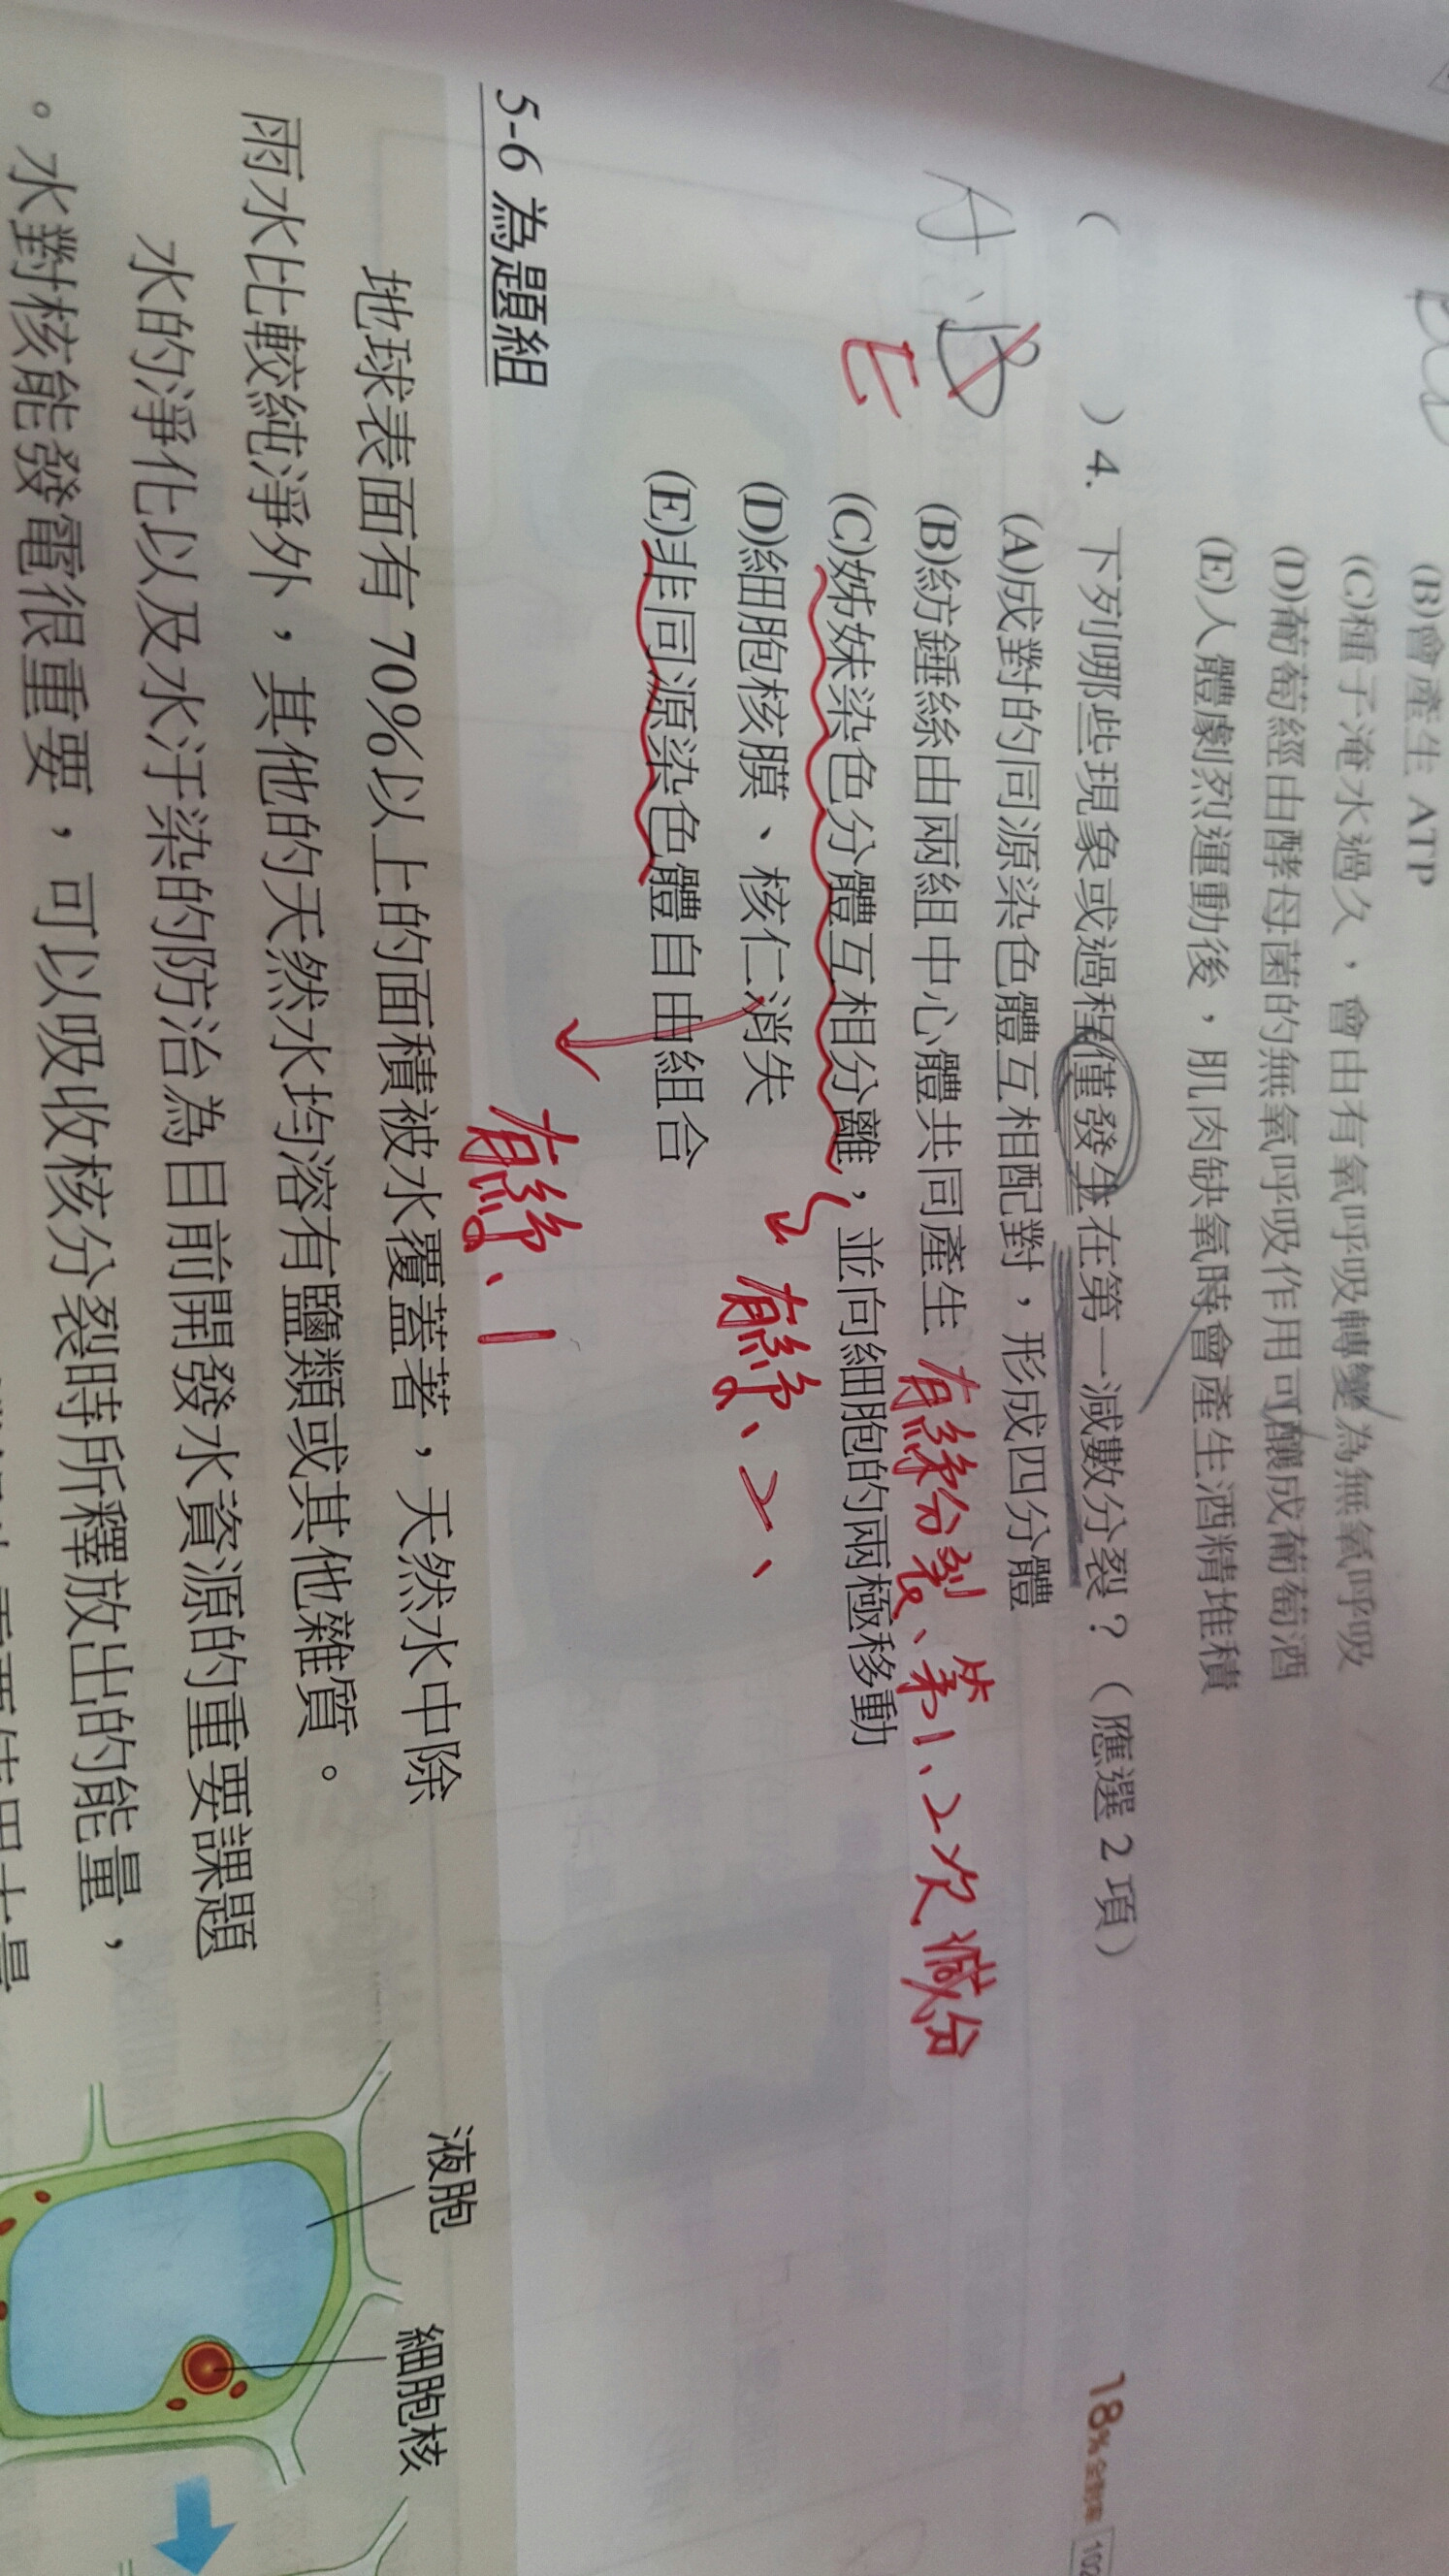 (B)會產生 ATP
(C)種子淹水過久，會由有氧呼吸轉變為無氧呼吸
(D)葡萄經由酵母菌的無氧呼吸作用可釀成葡萄酒
(E)人體劇烈運動後，肌肉缺氧時會產生酒精堆積
18%
102
( ) 4. 下列哪些現象或過程僅發生在第一減數分裂？（應選 2 項）
A、B
E
(A)成對的同源染色體互相配對，形成四分體
(B)紡錘絲由兩組中心體共同產生 有絲分裂、第1、2次減分
(C)姊妹染色分體互相分離，並向細胞的兩極移動
有絲、2、
(D)細胞核膜、核仁消失
(E)非同源染色體自由組合
有絲、1
5-6 為題組
地球表面有 70%以上的面積被水覆蓋著，天然水中除
雨水比較純淨外，其他的天然水均溶有鹽類或其他雜質。
水的淨化以及水汙染的防治為目前開發水資源的重要課題
。水對核能發電很重要，可以吸收核分裂時所釋放出的能量，
液胞
細胞核